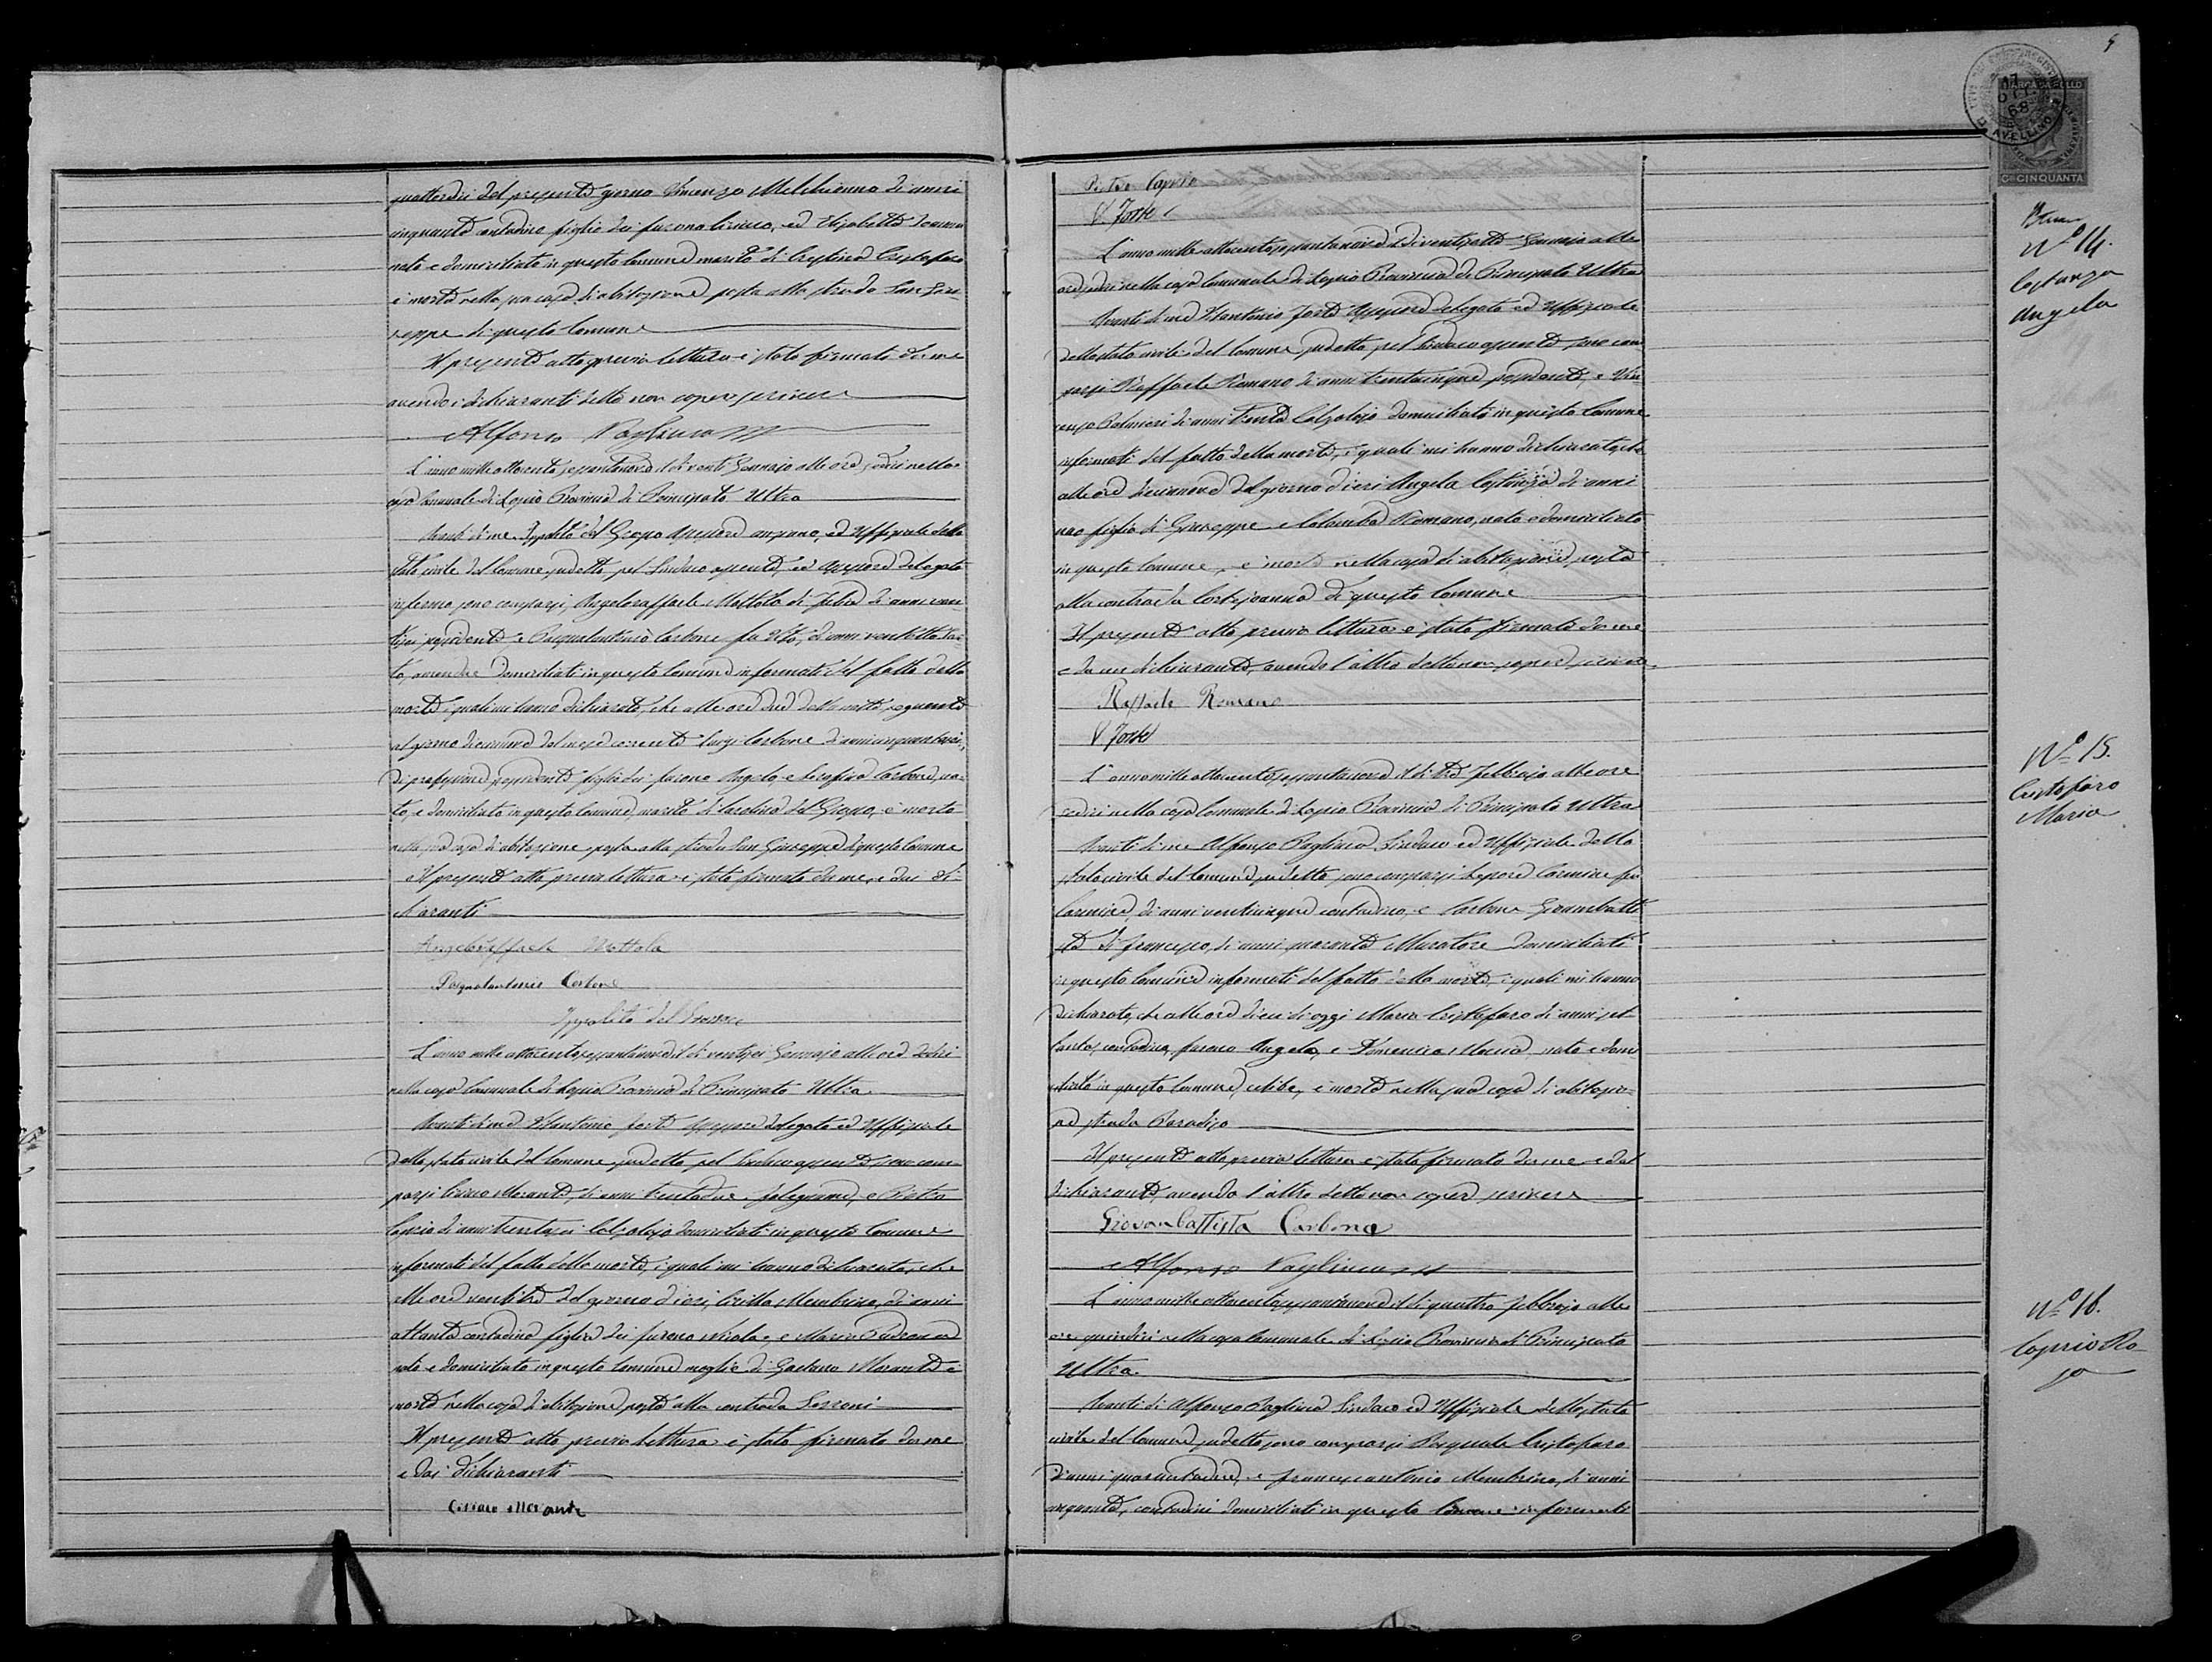 quattordici del presente giorno Vincenzo Melchionna di anni
cinquanta contadino figlio dei furono Ciriaco, ed Elisabetta
nato e domiciliato in questo Comune marito di Cristina Cristofaro
è morto nella sua casa di abitazione posta alla strada San Giu-
seppe di questo Comune
Il presente atto previa lettura è stato firmato da me
avendo i dichiaranti detto non sapere scrivere
Alfonso Pagliuca
L'anno mille ottocento sessantanove il dì venti Gennajo alle ore sedici nella
casa Comunale di Lapio Provincia di Principato Ultra
Avanti di me Ippolito del Grosso Assessore anziano, ed Uffiziale dello
Stato civile del Comune sudetto, pel Sindaco assente, ed Assessore delegato
infermo sono comparsi, Angeloraffaele Mottola di Felice di anni ven-
tisei possidente e Pasqualantonio Carbone fu Vito, di anni ventotto Sar-
to, amendue domiciliati in questo Comune informati del fatto della
morte i quali mi hanno dichiarato, che alle ore due della notte seguente
al giorno diciannove del mese corrente Luigi Carbone di anni cinquantasei,
di professione possidente figlio dei furono Angelo, e Serafina Carbone, na-
to, e domiciliato in questo Comune, marito di Carolina del Grosso, è morto
nella sua casa di abitazione posta alla strada San Giuseppe di questo Comune
Il presente atto previa lettura è stato firmato da me, e dai di-
chiaranti
Angeloraffaele Mottola
Pasqualantonio Carbone
Ippolito del Grosso
L'anno mille ottocento sessantanove il dì ventisei Gennajo alle ore sedici
nella casa Comunale di Lapio Provincia di Principato Ultra
Avanti di me Vitantonio Forte Assessore delegato ed Uffiziale
dello stato civile del Comune sudetto pel Sindaco assente sono com-
parsi Ciriaco Morante, di anni trentadue falegname, e Pietro
Caprio di anni trentasei Calzolajo domiciliati in questo Comune
informati del fatto della morte, i quali mi hanno dichiarato, che
alle ore ventitre del giorno d'ieri, Civitta Membrino, di anni
ottanta contadina figlia dei furono Nicola, e Maria
nata e domiciliata in questo Comune moglie di Gaetano Morante è
morta nella casa di abitazione posta alla contrada Serroni
Il presente atto previa lettura è stato firmato da me
e dai dichiaranti
Ciriaco Morante
Pietro Caprio
V. Forte
L'anno mille ottocento sessantanove il dì ventisette Gennajo alle
ore sedici nella casa Comunale di Lapio Provincia di Principato Ultra
Avanti di me Vitantonio Forte Assessore delegato ed Uffiziale
dello stato civile del Comune sudetto pel Sindaco assente sono com-
parsi Raffaele Romano di anni trentacinque possidente, e Vin-
cenzo Palmieri di anni trenta Calzolajo domiciliati in questo Comune
informati del fatto della morte, i quali mi hanno dichiarato, che
alle ore diciannove del giorno d'ieri Angela Costanza di anni
uno figlia di Giuseppe e Colomba Romano, nata e domiciliata
in questo Comune, è morta nella casa di abitazione, posta
alla contrada Cortigianna di questo Comune
Il presente atto previa lettura è stato firmato da me
e da un dichiarante, avendo l'altro detto non sapere scrivere
Raffaele Romano
V Forte
L'anno mille ottocento sessantanove il dì tre Febbrajo alle ore
sedici nella casa Comunale di Lapio Provincia di Principato Ultra
Avanti di me Alfonso Pagliuca Sindaco ed Uffiziale dello
stato civile del Comune sudetto sono comparsi Lepore Carmine fu
Carmine, di anni venticinque contadino, e Carbone Giambatti-
sta di Francesco, di anni quaranta Muratore domiciliati
in questo Comune informati del fatto della morte, i quali mi hanno
dichiarato, che alle ore dieci di oggi Maria Cristofaro di anni set-
tanta, contadina, furono Angelo, e Domenica Macia, nata e domi-
ciliata in questo Comune celibe, è morta nella sua casa di abitazio-
ne strada Paradiso
Il presente atto previa lettura è stato firmato da me e dal
dichiarante, avendo l'altro detto non sapere scrivere
Giovanbattista Carbone
Alfonso Pagliuca
L'anno mille ottocento sessantanove il dì quattro Febbrajo alle
ore quindici nella casa Comunale di Lapio Provincia di Principato
Ultra
Avanti di Alfonso Pagliuca Sindaco ed Uffiziale dello stato
civile del Comune sudetto sono comparsi Pasquale Cristofaro
d'anni quarantadue, e Francescantonio Membrino, di anni
cinquanta, contadini domiciliati in questo Comune informati
5
17
OTT
68
AVELLINO
MARCA DA BOLLO
Ci CINQUANTA
No 14.
Costanza
Angela
No 15.
Cristofaro
Maria
No 16.
Caprio Ro-
sa